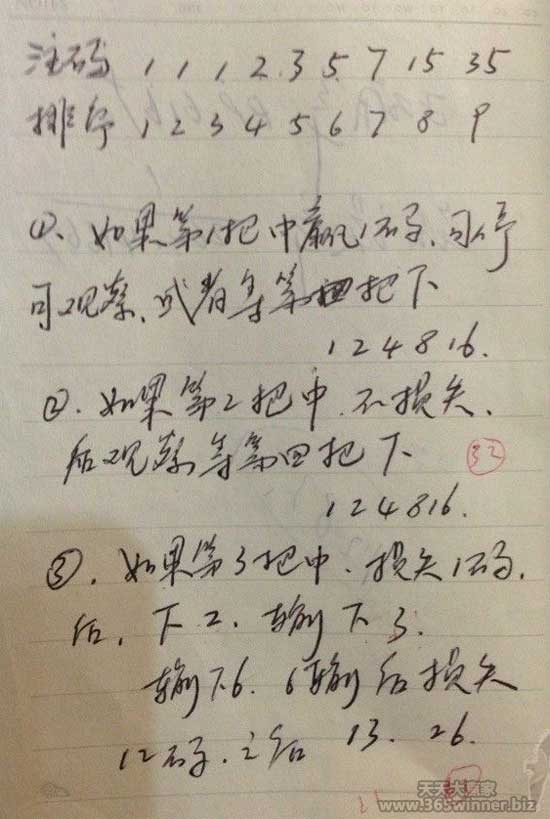 注码 1 1 1 2 3 5 7 15 35
排序 1 2 3 4 5 6 7 8 9
①、如果第1把中赢1码、可停
可观察、或者等第四把下
1 2 4 8 16.
②、如果第2把中、不损失、
后观察等第四把下
32
1 2 4 8 16.
③、如果第3把中、损失1码、
后、下2、输下3.
输下6. 6输后损失
12码、之后 13. 26.
天天大赢家
www.365winner.biz